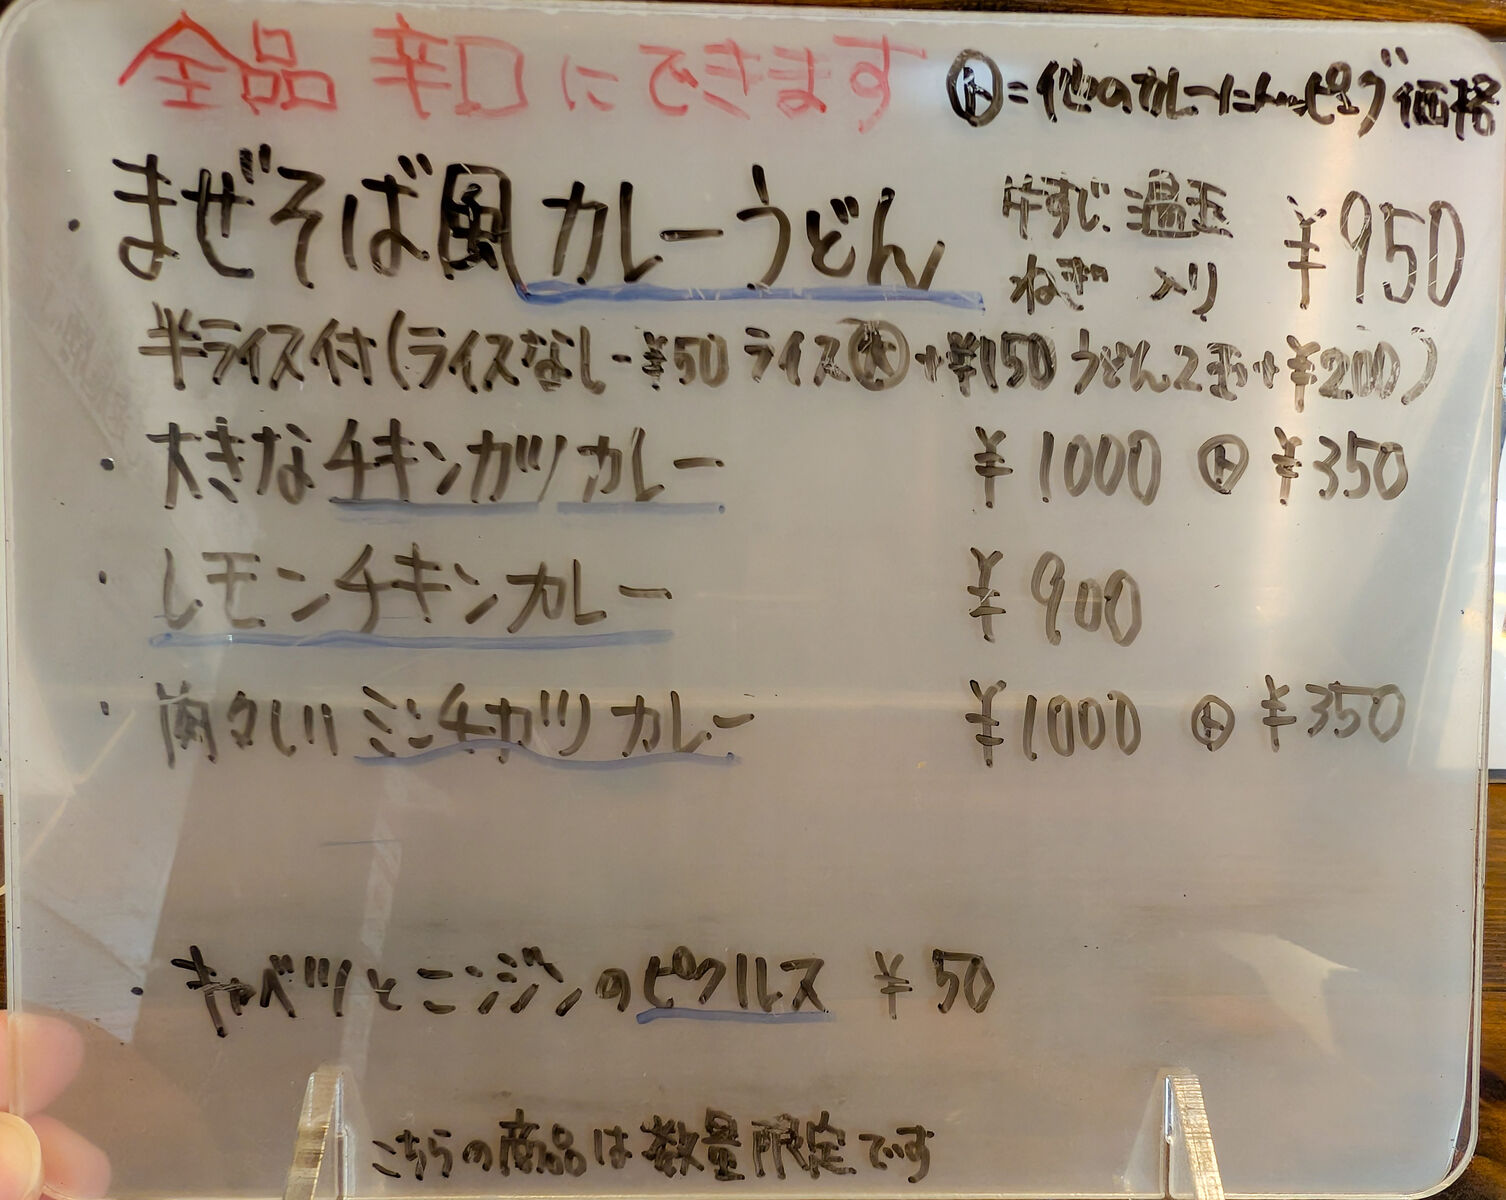 全品 辛口にできます
ト=他のカレーにトッピング価格
・まぜそば風カレーうどん 牛すじ 温玉 ねぎ 入り ¥950
半ライス付(ライスなし-¥50 ライス大+¥150 うどん2玉+¥200)
・大きなチキンカツカレー ¥1000 ト ¥350
・レモンチキンカレー ¥900
・肉々しいミンチカツカレー ¥1000 ト ¥350
・キャベツとニンジンのピクルス ¥50
こちらの商品は数量限定です